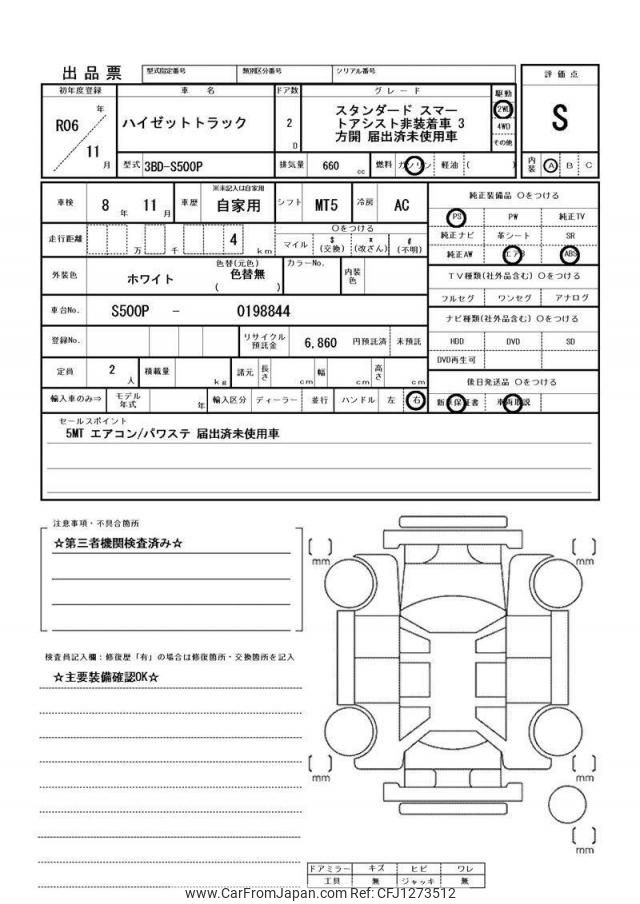 出品票 型式指定番号 類別区分番号 シリアル番号 評価点
初年度登録 車名 ドア数 グレード 駆動
R06 年 ハイゼットトラック 2 D スタンダード スマー 2WD S
トアシスト非装着車 3 4WD
11 月 方開 届出済未使用車 その他
型式 3BD-S500P 排気量 660 cc 燃料 ガソリン 軽油 ( ) 内装 A B C
※未記入は自家用
車検 8 年 11 月 車歴 自家用 シフト MT5 冷房 AC 純正装備品 〇をつける
PS PW 純正TV
走行距離 万 千 4 km 〇をつける
マイル $ (交換) * (改ざん) # (不明) 純正ナビ 革シート SR
純正AW エアB ABS
外装色 ホワイト 色替(元色) 色替無 ( ) カラーNo. 内装色 TV種類(社外品含む) 〇をつける
フルセグ ワンセグ アナログ
車台No. S500P - 0198844 ナビ種類(社外品含む) 〇をつける
登録No. リサイクル預託金 6,860 円預託済 未預託 HDD DVD SD
DVD再生可
定員 2 人 積載量 kg 諸元 長さ cm 幅 cm 高さ cm 後日発送品 〇をつける
輸入車のみ⇒ モデル年式 年 輸入区分 ディーラー 並行 ハンドル 左 右 新車保証書 車両取説
セールスポイント
5MT エアコン/パワステ 届出済未使用車
注意事項・不具合箇所
☆第三者機関検査済み☆
mm mm
検査員記入欄：修復歴「有」の場合は修復箇所・交換箇所を記入
☆主要装備確認OK☆
mm mm
mm
ドアミラー キズ ヒビ ワレ
工具 無 ジャッキ 無
www.CarFromJapan.com Ref: CFJ1273512